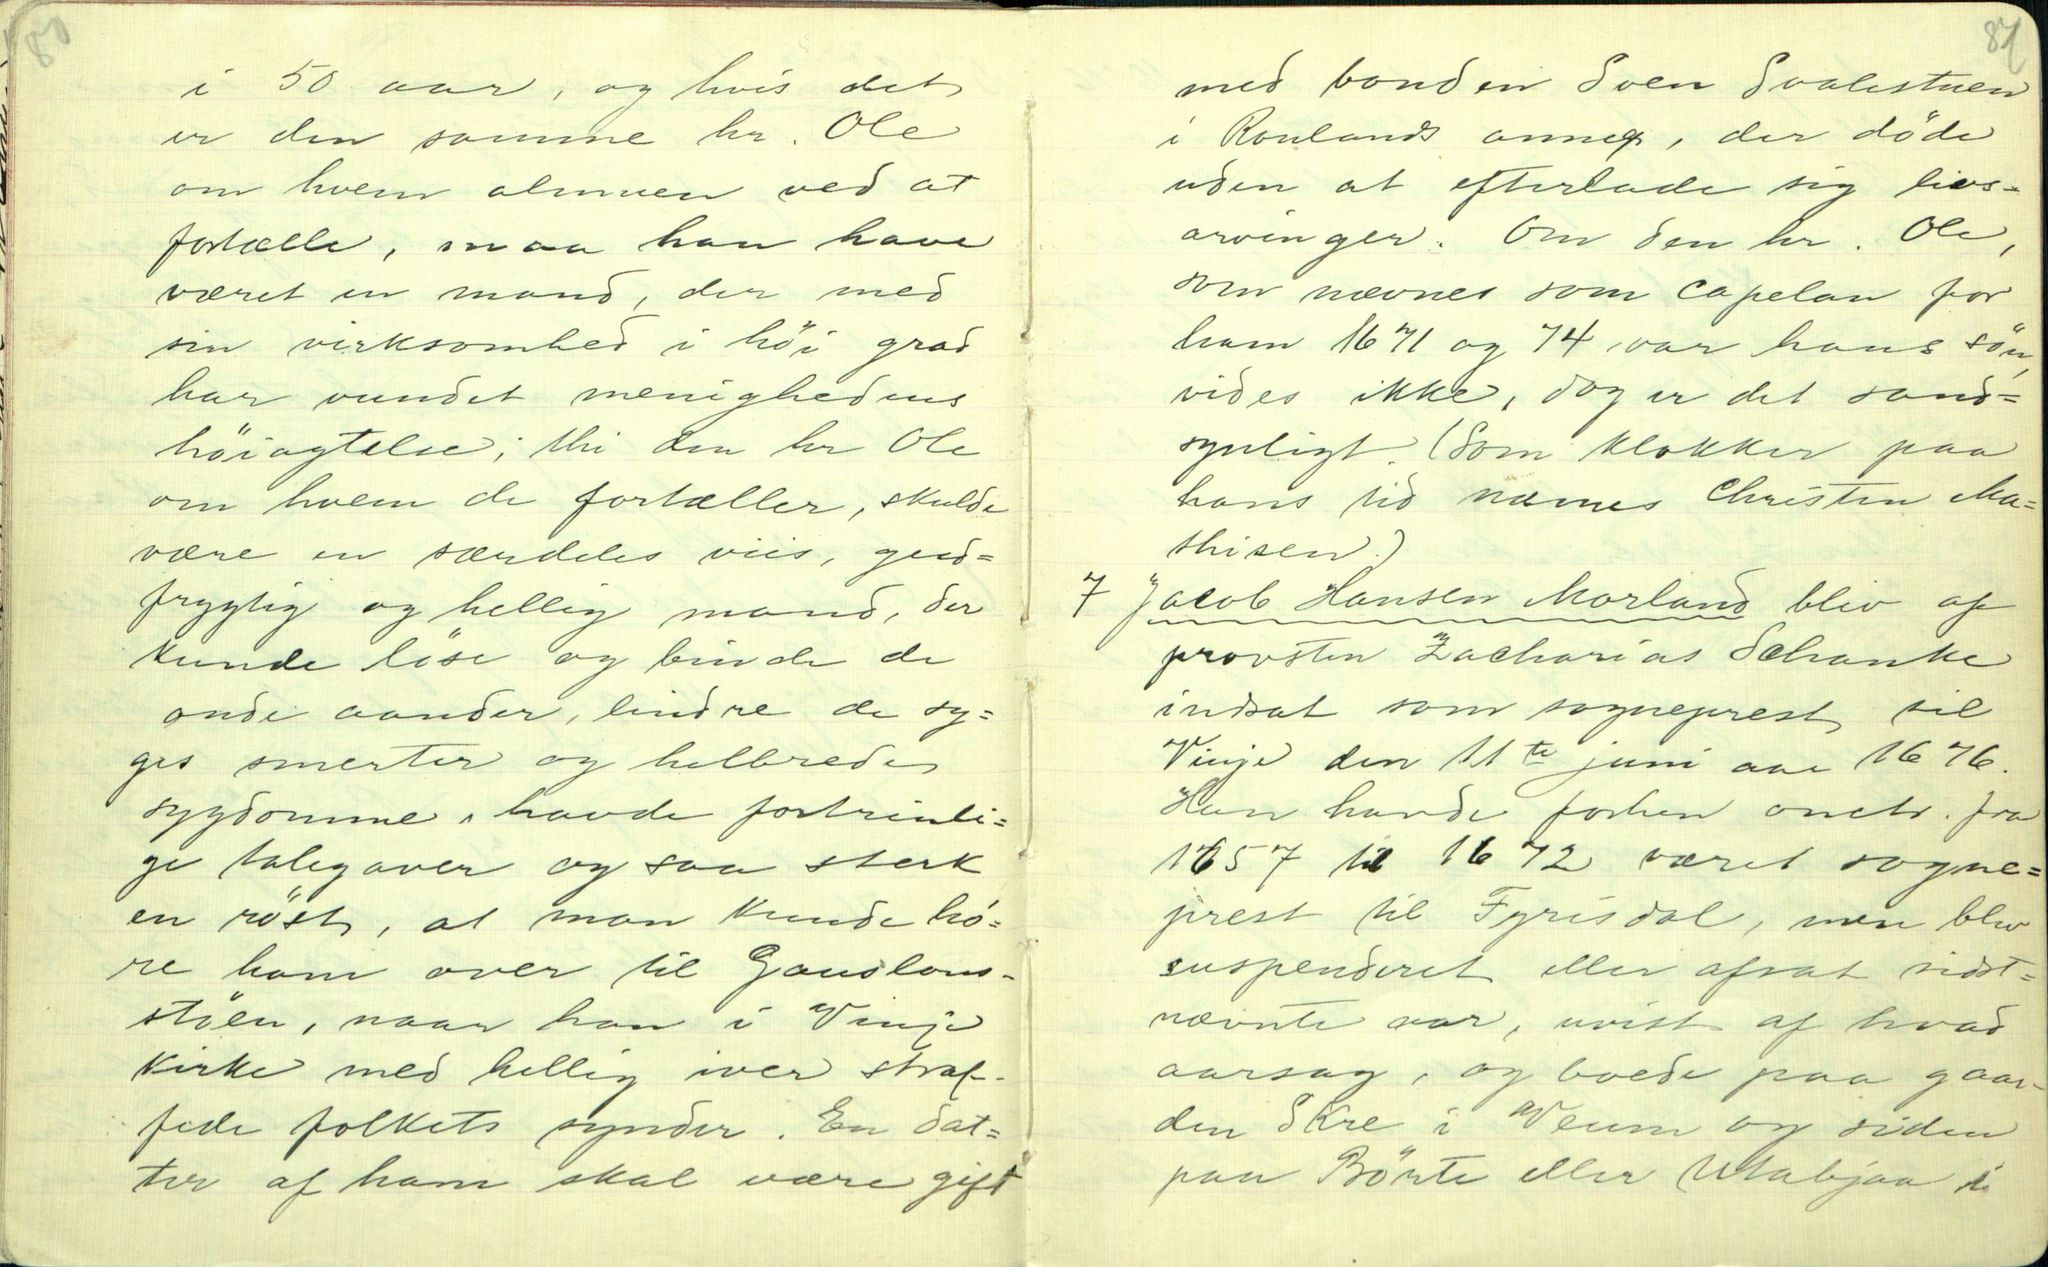 80
i 50 aar, og hvis det
er den samme hr. Ole
om hvem almuen ved at
fortælle, maa han have
været en mand, der med
sin virksomhed i höi grad
har vundet menighedens
höiagtelse; thi den hr Ole
om hvem de fortæller, skulde
være en særdeles viis, gud=
frygtig og hellig mand, der
kunde löse og binde de
onde aander, lindre de sy=
ges smerter og helbrede
sygdomme, havde fortrinli=
ge talegaver og saa sterk
en röst, at man kunde hö=
re ham over til
stöen, naar han i Vinje
kirke med hellig iver straf-
fede folkets synder. En dat=
ter af ham skal være gift
81
med bonden Sven Svalestuen
i Roulands annex, der döde
uden at efterlade sig livs=
arvinger. Om den hr. Ole,
som nævnes som capelan for
ham 1671 og 74, var hans sön,
vides ikke, dog er det sand=
synligt. (Som klokker paa
hans tid nævnes Christen Ma=
thisen.)
7 Jacob Hansen Morland blev af
provsten Zacharias Schanke
indsat som sogneprest til
Vinje den 11te juni aar 1676.
Han havde forhen omtr. fra
1657 til 1672 været sogne=
prest til Fyrisdal, men blev
suspenderet eller afsat sidst=
nævnte aar, uvist af hvad
aarsag, og boede paa gaar-
den Skre i Veum og siden
paa Börte eller Utabjaa i